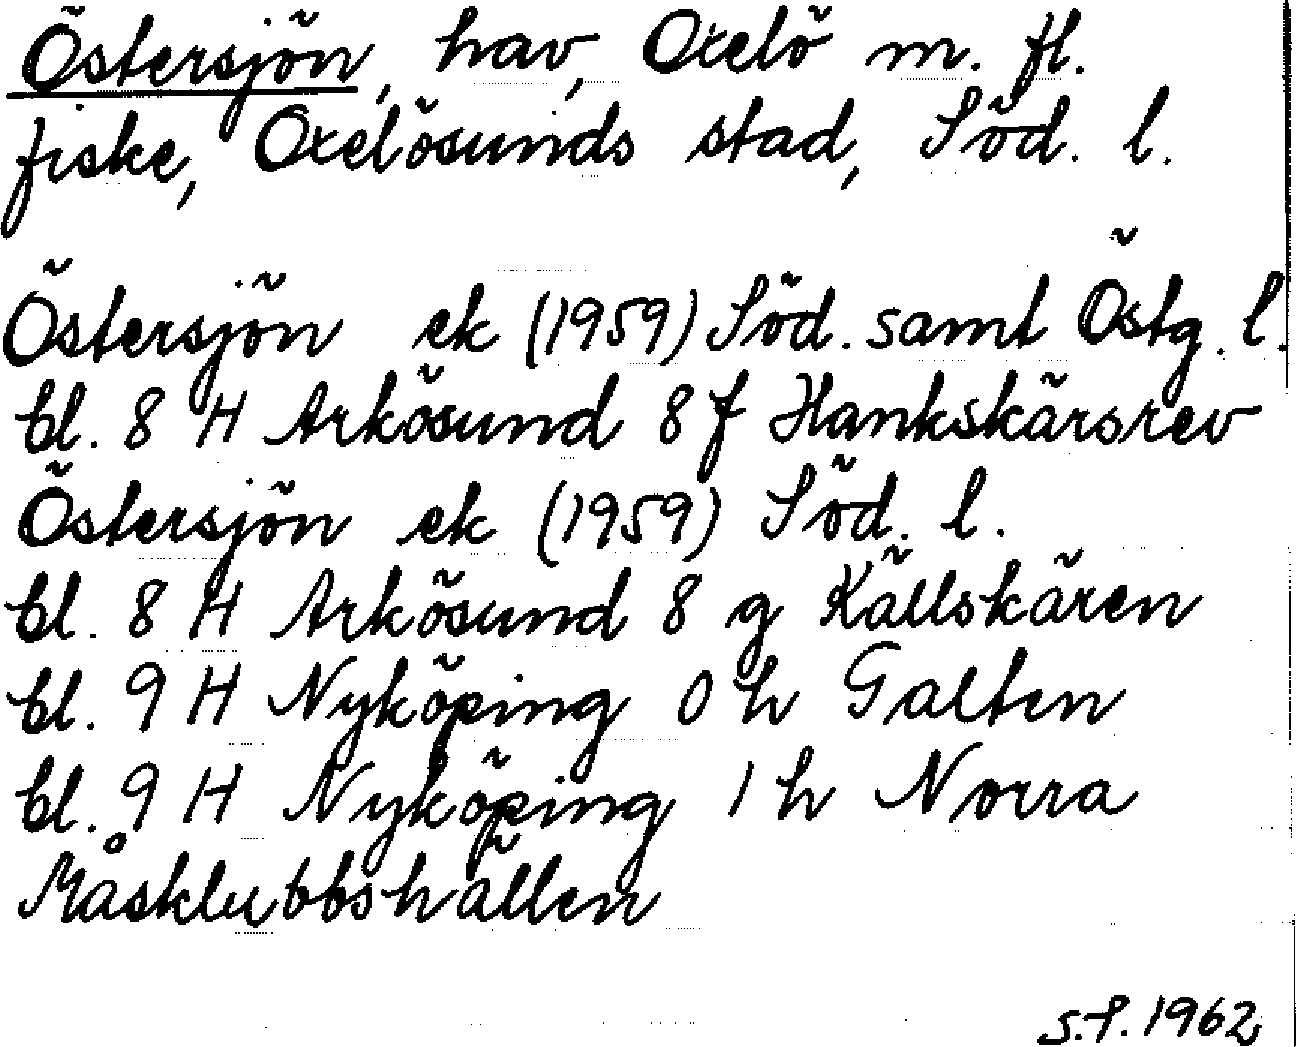 Östersjön, hav, Oxelö m. fl.
fiske, Oxelösunds stad, Söd. l.
Östersjön ek (1959) Söd. samt Östg. l.
bl. 8 H Arkösund 8 f Hankskärsrev
Östersjön ek (1959) Söd. l.
bl. 8 H Arkösund 8 g Källskären
bl. 9 H Nyköping 0 h Galten
bl. 9 H Nyköping 1 h Norra
Måsklubbshällen
S.P. 1962